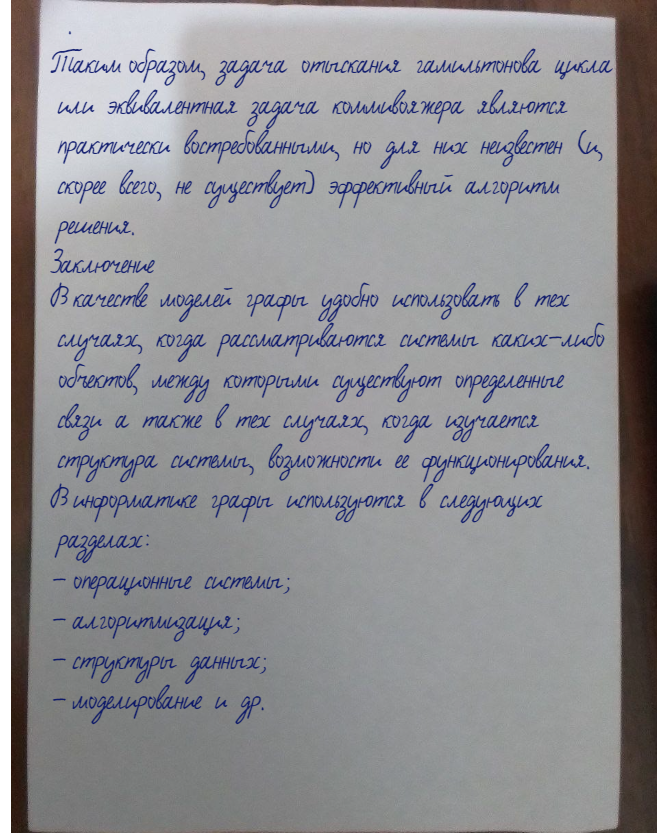 Таким образом, задача отыскания гамильтонова цикла
или эквивалентная задача коммивояжера являются
практически востребованными, но для них неизвестен (и,
скорее всего, не существует) эффективный алгоритм
решения.
Заключение
В качестве моделей графы удобно использовать в тех
случаях, когда рассматриваются системы каких-либо
объектов, между которыми существуют определенные
связи а также в тех случаях, когда изучается
структура системы, возможности ее функционирования.
В информатике графы используются в следующих
разделах:
- операционные системы;
- алгоритмизация;
- структуры данных;
- моделирование и др.